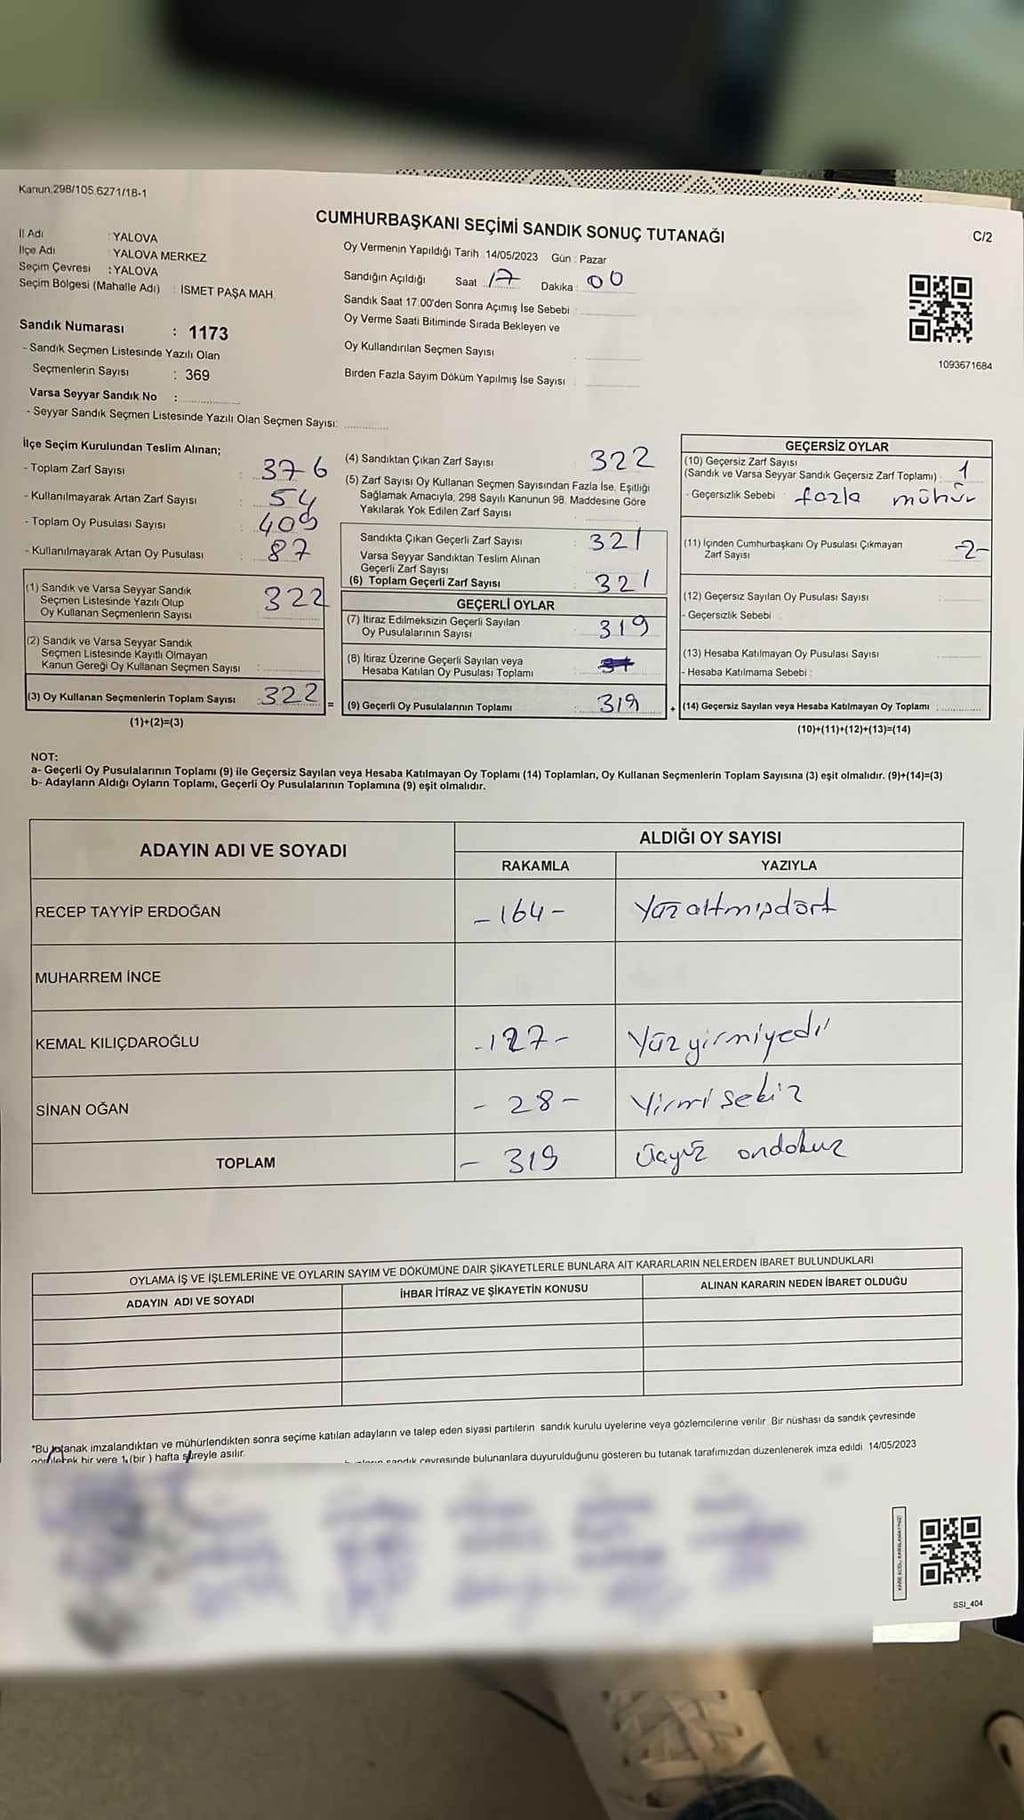 Kanun.298/105.6271/18-1
CUMHURBAŞKANI SEÇİMİ SANDIK SONUÇ TUTANAĞI
C/2
İl Adı : YALOVA
İlçe Adı : YALOVA MERKEZ
Seçim Çevresi : YALOVA
Seçim Bölgesi (Mahalle Adı) : İSMET PAŞA MAH.
Sandık Numarası : 1173
- Sandık Seçmen Listesinde Yazılı Olan
Seçmenlerin Sayısı : 369
Varsa Seyyar Sandık No :
- Seyyar Sandık Seçmen Listesinde Yazılı Olan Seçmen Sayısı:
Oy Vermenin Yapıldığı Tarih : 14/05/2023 Gün : Pazar
Sandığın Açıldığı Saat : 17 Dakika : 00
Sandık Saat 17:00'den Sonra Açımış İse Sebebi :
Oy Verme Saati Bitiminde Sırada Bekleyen ve
Oy Kullandırılan Seçmen Sayısı :
Birden Fazla Sayım Döküm Yapılmış İse Sayısı :
1093671684
İlçe Seçim Kurulundan Teslim Alınan;
- Toplam Zarf Sayısı : 376
- Kullanılmayarak Artan Zarf Sayısı : 54
- Toplam Oy Pusulası Sayısı : 409
- Kullanılmayarak Artan Oy Pusulası : 87
(1) Sandık ve Varsa Seyyar Sandık
Seçmen Listesinde Yazılı Olup
Oy Kullanan Seçmenlerin Sayısı : 322
(2) Sandık ve Varsa Seyyar Sandık
Seçmen Listesinde Kayıtlı Olmayan
Kanun Gereği Oy Kullanan Seçmen Sayısı :
(3) Oy Kullanan Seçmenlerin Toplam Sayısı : 322
(1)+(2)=(3)
=
(4) Sandıktan Çıkan Zarf Sayısı : 322
(5) Zarf Sayısı Oy Kullanan Seçmen Sayısından Fazla İse, Eşitliği
Sağlamak Amacıyla, 298 Sayılı Kanunun 98. Maddesine Göre
Yakılarak Yok Edilen Zarf Sayısı :
Sandıkta Çıkan Geçerli Zarf Sayısı : 321
Varsa Seyyar Sandıktan Teslim Alınan
Geçerli Zarf Sayısı :
(6) Toplam Geçerli Zarf Sayısı : 321
GEÇERLİ OYLAR
(7) İtiraz Edilmeksizin Geçerli Sayılan
Oy Pusulalarının Sayısı : 319
(8) İtiraz Üzerine Geçerli Sayılan veya
Hesaba Katılan Oy Pusulası Toplamı :
(9) Geçerli Oy Pusulalarının Toplamı : 319
+
GEÇERSİZ OYLAR
(10) Geçersiz Zarf Sayısı
(Sandık ve Varsa Seyyar Sandık Geçersiz Zarf Toplamı) : 1
- Geçersizlik Sebebi : fazla mühür
(11) İçinden Cumhurbaşkanı Oy Pusulası Çıkmayan
Zarf Sayısı -2-
(12) Geçersiz Sayılan Oy Pusulası Sayısı :
- Geçersizlik Sebebi :
(13) Hesaba Katılmayan Oy Pusulası Sayısı :
- Hesaba Katılmama Sebebi :
(14) Geçersiz Sayılan veya Hesaba Katılmayan Oy Toplamı :
(10)+(11)+(12)+(13)=(14)
NOT:
a- Geçerli Oy Pusulalarının Toplamı (9) ile Geçersiz Sayılan veya Hesaba Katılmayan Oy Toplamı (14) Toplamları, Oy Kullanan Seçmenlerin Toplam Sayısına (3) eşit olmalıdır. (9)+(14)=(3)
b- Adayların Aldığı Oyların Toplamı, Geçerli Oy Pusulalarının Toplamına (9) eşit olmalıdır.
ADAYIN ADI VE SOYADI
ALDIĞI OY SAYISI
RAKAMLA YAZIYLA
RECEP TAYYİP ERDOĞAN -164- Yüzaltmışdört
MUHARREM İNCE
KEMAL KILIÇDAROĞLU -127- Yüzyirmiyedi
SİNAN OĞAN - 28 - Yirmisekiz
TOPLAM - 319 Üçyüz ondokuz
OYLAMA İŞ VE İŞLEMLERİNE VE OYLARIN SAYIM VE DÖKÜMÜNE DAİR ŞİKAYETLERLE BUNLARA AİT KARARLARIN NELERDEN İBARET BULUNDUKLARI
ADAYIN ADI VE SOYADI
İHBAR İTİRAZ VE ŞİKAYETİN KONUSU
ALINAN KARARIN NEDEN İBARET OLDUĞU
*Bu tutanak imzalandıktan ve mühürlendikten sonra seçime katılan adayların ve talep eden siyasi partilerin sandık kurulu üyelerine veya gözlemcilerine verilir. Bir nüshası da sandık çevresinde
bir yere 1 (bir ) hafta süreyle asılır.
sandık çevresinde bulunanlara duyurulduğunu gösteren bu tutanak tarafımızdan düzenlenerek imza edildi. 14/05/2023
SSI_404